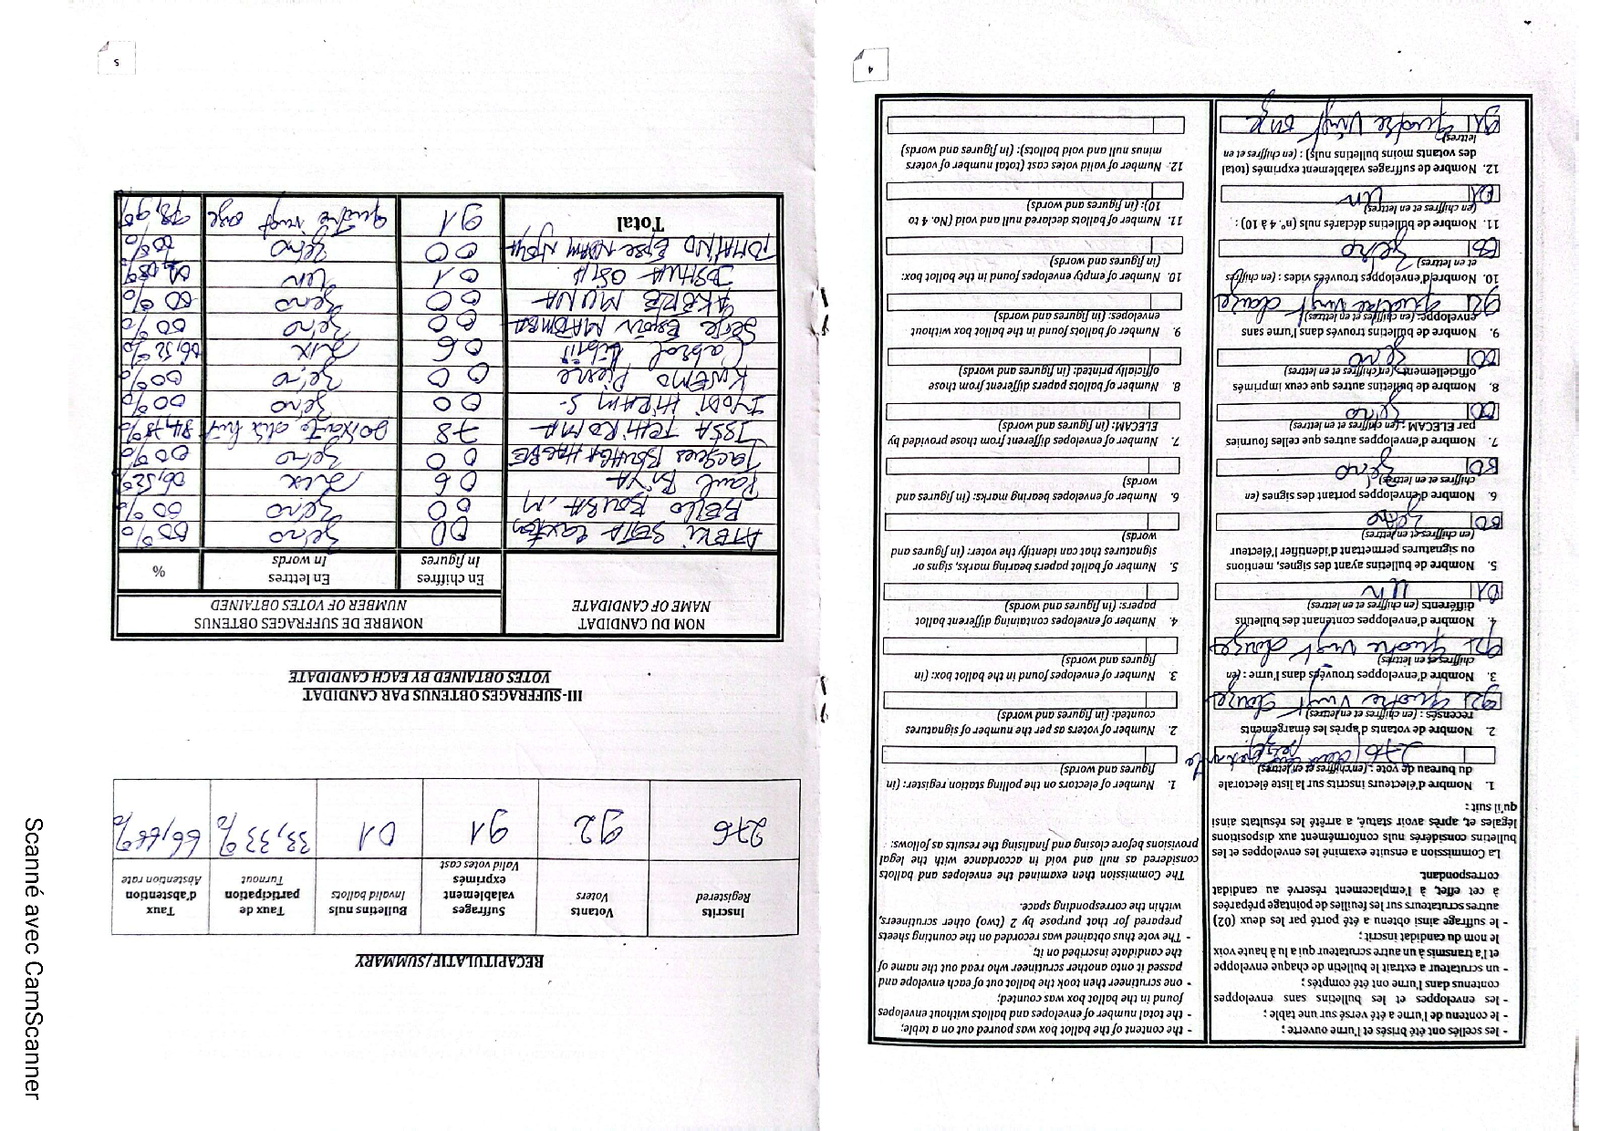 4
- les scellés ont été brisés et l'urne ouverte ;
- le contenu de l'urne a été versé sur une table ;
- les enveloppes et les bulletins sans enveloppes
contenus dans l'urne ont été comptés ;
- un scrutateur a extrait le bulletin de chaque enveloppe
et l'a transmis à un autre scrutateur qui a lu à haute voix
le nom du candidat inscrit ;
- le suffrage ainsi obtenu a été porté par les deux (02)
autres scrutateurs sur les feuilles de pointage préparées
à cet effet, à l'emplacement réservé au candidat
correspondant.
La Commission a ensuite examiné les enveloppes et les
bulletins considérés nuls conformément aux dispositions
légales et, après avoir statué, a arrêté les résultats ainsi
qu'il suit :
1. Nombre d'électeurs inscrits sur la liste électorale
du bureau de vote : (en chiffres et en lettres)
276
2. Nombre de votants d'après les émargements
recensés : (en chiffres et en lettres)
92 quatre vingt douze
3. Nombre d'enveloppes trouvées dans l'urne : (en
chiffres et en lettres)
92 quatre vingt douze
4. Nombre d'enveloppes contenant des bulletins
différents (en chiffres et en lettres)
01 un
5. Nombre de bulletins ayant des signes, mentions
ou signatures permettant d'identifier l'électeur
(en chiffres et en lettres)
00 zéro
6. Nombre d'enveloppes portant des signes (en
chiffres et en lettres)
00 zéro
7. Nombre d'enveloppes autres que celles fournies
par ELECAM : (en chiffres et en lettres)
00 zéro
8. Nombre de bulletins autres que ceux imprimés
officiellement (en chiffres et en lettres)
00 zéro
9. Nombre de bulletins trouvés dans l'urne sans
enveloppe: (en chiffres et en lettres)
92 quatre vingt douze
10. Nombre d'enveloppes trouvées vides : (en chiffres
et en lettres)
00 zéro
11. Nombre de bulletins déclarés nuls (n°. 4 à 10) :
(en chiffres et en lettres)
01 un
12. Nombre de suffrages valablement exprimés (total
des votants moins bulletins nuls) : (en chiffres et en
lettres)
91 quatre vingt onze
- the content of the ballot box was poured out on a table;
- the total number of envelopes and ballots without envelopes
found in the ballot box was counted;
- one scrutineer then took the ballot out of each envelope and
passed it onto another scrutineer who read out the name of
the candidate inscribed on it;
- The vote thus obtained was recorded on the counting sheets
prepared for that purpose by 2 (two) other scrutineers,
within the corresponding space.
The Commission then examined the envelopes and ballots
considered as null and void in accordance with the legal
provisions before closing and finalising the results as follows:
1. Number of electors on the polling station register: (in
figures and words)
2. Number of voters as per the number of signatures
counted: (in figures and words)
3. Number of envelopes found in the ballot box: (in
figures and words)
4. Number of envelopes containing different ballot
papers: (in figures and words)
5. Number of ballot papers bearing marks, signs or
signatures that can identify the voter: (in figures and
words)
6. Number of envelopes bearing marks: (in figures and
words)
7. Number of envelopes different from those provided by
ELECAM: (in figures and words)
8. Number of ballots papers different from those
officially printed: (in figures and words)
9. Number of ballots found in the ballot box without
envelopes: (in figures and words)
10. Number of empty envelopes found in the ballot box:
(in figures and words)
11. Number of ballots declared null and void (No. 4 to
10): (in figures and words)
12. Number of valid votes cast (total number of voters
minus null and void ballots): (in figures and words)
5
RECAPITULATIF/SUMMARY
Inscrits Registered | Votants Voters | Suffrages valablement exprimés Valid votes cast | Bulletins nuls Invalid ballots | Taux de participation Turnout | Taux d'abstention Abstention rate
276 | 92 | 91 | 01 | 33,33% | 66,66%
III-SUFFRAGES OBTENUS PAR CANDIDAT
VOTES OBTAINED BY EACH CANDIDATE
NOM DU CANDIDAT NAME OF CANDIDATE | NOMBRE DE SUFFRAGES OBTENUS NUMBER OF VOTES OBTAINED
En chiffres In figures | En lettres In words | %
ATEKI SETA Caxton | 00 | zéro | 00%
BELLO BOUBA, M | 00 | zéro | 00%
Paul BIYA | 06 | six | 06,52%
Jacques BOUHGA HAGBE | 00 | zéro | 00%
ISSA TCHIROMA | 78 | soixante dix huit | 84,78%
IYODI HIRAM S. | 00 | zéro | 00%
KWEMO Pierre | 00 | zéro | 00%
Cabral Libii | 06 | six | 06,52%
Serge Espoir MATOMBA | 00 | zéro | 00%
AKERE MUNA | 00 | zéro | 00%
JOSHUA OSIH | 01 | un
TOMAINO Epse NDAM NJOYA | 00 | zéro | 00%
Total | 91 | quatre vingt onze | 98,9%
Scanné avec CamScanner